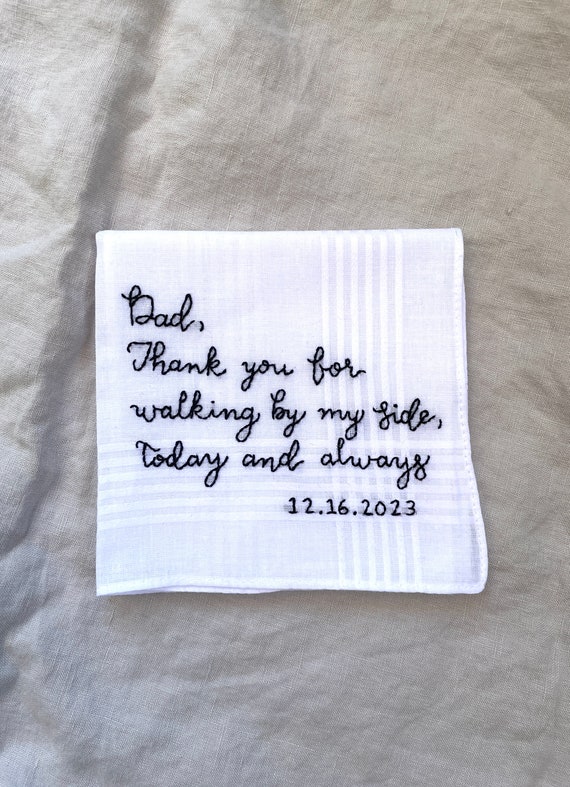 Dad,
Thank you for
walking by my side,
Today and always
12.16.2023